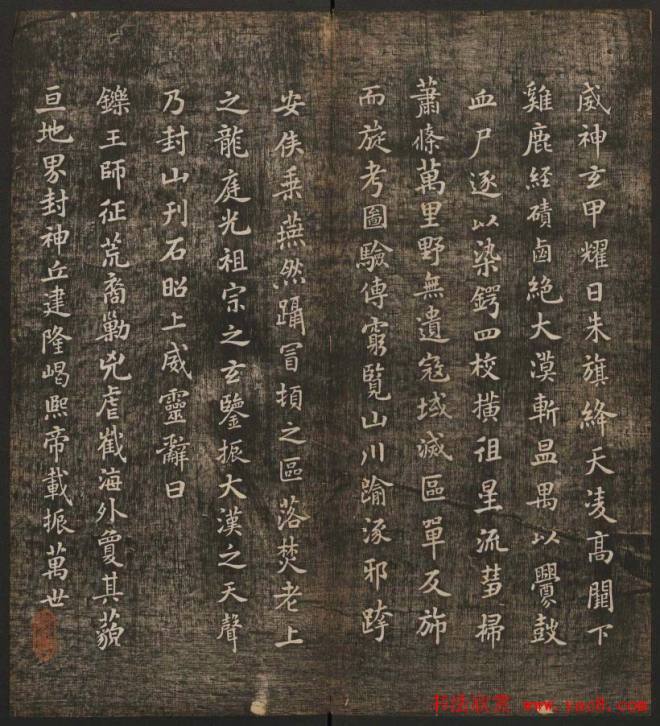 威神玄甲耀日朱旗絳天凌高闕下
雞鹿經磧鹵絕大漠斬温禺以釁鼓
血尸逐以染鍔四校橫徂星流彗掃
蕭條萬里野無遺寇域滅區單反旆
而旋考圖驗傳窮覽山川踰涿邪跨
安侯乗燕然躡冒頓之區落焚老上
之龍庭光祖宗之玄鑒振大漢之天聲
乃封山刊石昭上威靈辭曰
鑠王師征荒裔勦兇虐截海外夐其藐
亘地界封神丘建隆嵑熙帝載振萬世
书法欣赏 www.yac8.com